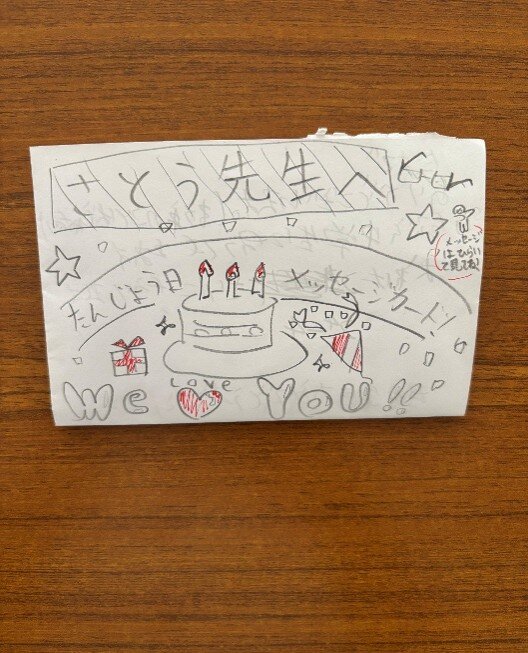 さとう先生へ
メッセージ
はひらい
て見てね!
たんじょう日 メッセージカード!
LOVE
We YOU!!